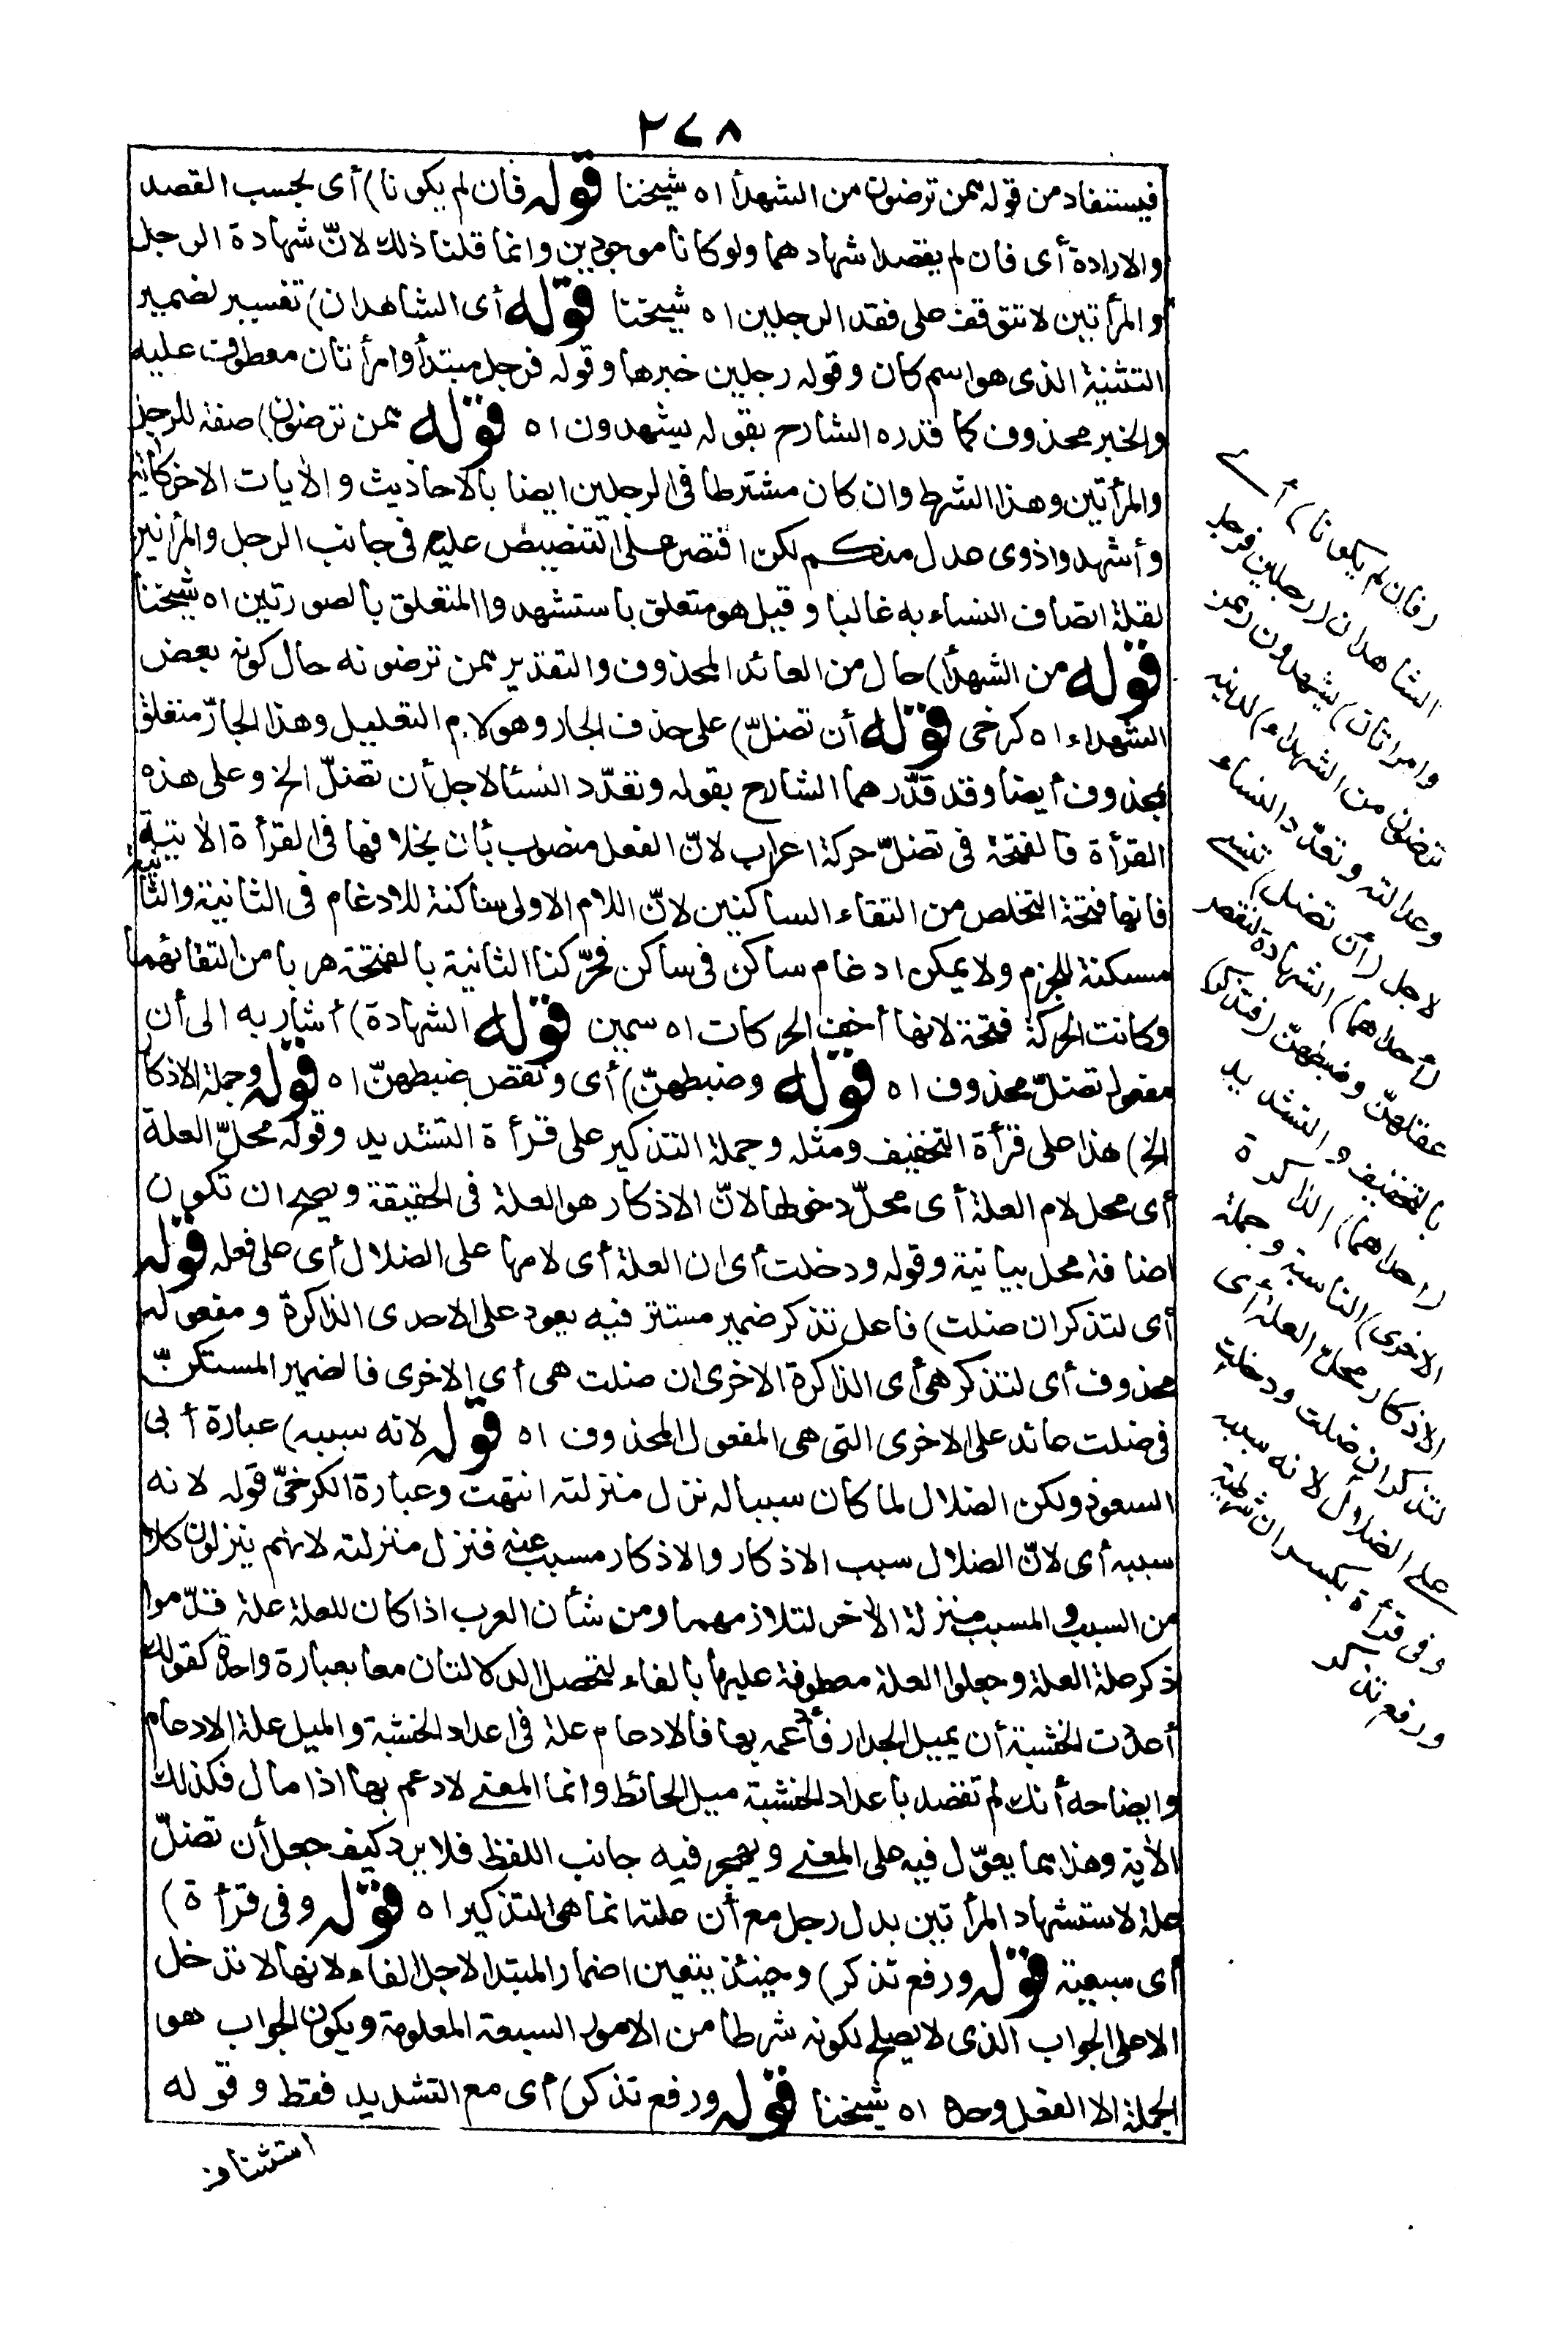 ٢٧٨
فيستفاد من قوله ممن ترضون من الشهدأ اه شيخنا قوله فان لم يكونا) أى بحسب القصد
والارادة أى فان لم يقصد اشهادهما ولو كانا موجودين وانما قلنا ذلك لانّ شهادة الرجل
والمرأتين لا تتوقف على فقد الرجلين اه شيخنا قوله أى الشاهدان) تفسير لضمير
التثنية الذى هو اسم كان وقوله رجلين خبرها وقوله فرجل مبتدأ وامرأتان معطوف عليه
والخبر محذوف كما قدره الشارح بقوله يشهدون اه قوله ممن ترضون) صفة للرجل
والمرأتين وهذا الشرط وان كان مشترطا فى الرجلين ايضا بالاحاديث والأيات الاخر كأية
وأشهدوا ذوى عدل منكم لكن اقتصر على التنصيص عليه فى جانب الرجل والمرأتين
لقلة اتصاف النساء به غالبا وقيل هو متعلق باستشهدوا المتعلق بالصورتين اه شيخنا
قوله من الشهدأ) حال من العائد المحذوف والتقدير ممن ترضونه حال كونه بعض
الشهداء اه كرخى قوله أن تضلّ) على حذف الجار وهو لام التعليل وهذا الجارّ متعلق
بمحذوف أيضا وقد قدّرهما الشارح بقوله وتعدّد النسأ لاجل أن تضلّ الخ وعلى هذه
القرأة فالفتحة فى تضلّ حركة اعراب لانّ الفعل منصوب بأن بخلافها فى القرأة الأتية
فانها فتحة التخلص من التقاء الساكنين لانّ اللام الاولى ساكنة للادغام فى الثانية والثانية
مسكنة للجزم ولا يمكن ادغام ساكن فى ساكن فحرّكنا الثانية بالفتحة هربا من التقائهما
وكانت الحركة فتحة لانها أخف الحركات اه سمين قوله الشهادة) أشار به الى أن
مفعول تضلّ محذوف اه قوله وضبطهنّ) أى ونقص ضبطهنّ اه قوله وجملة الاذكار
الخ) هذا على قرأة التخفيف ومثله وجملة التذكير على قرأة التشديد وقوله محلّ العلة
أى محل لام العلة أى محلّ دخولها لانّ الاذكار هو العلة فى الحقيقة ويصح ان تكون
اضافة محل بيانية وقوله ودخلت أى ان العلة أى لامها على الضلال أى على فعله قوله
أى لتذكر ان ضلت) فاعل تذكر ضمير مستتر فيه يعود على الاحدى الذاكرة ومفعوله
محذوف أى لتذكر هى أى الذاكرة الاخرى ان ضلت هى أى الاخرى فالضمير المستكنّ
فى ضلت عائد على الاخرى التى هى المفعول المحذوف اه قوله لانه سببه) عبارة أبى
السعود ولكن الضلال لما كان سببا له نزل منزلته انتهت وعبارة الكرخىّ قوله لانه
سببه أى لانّ الضلال سبب الاذكار والاذكار مسبب عنه فنزل منزلته لانهم ينزلون كلا
من السبب والمسبب منزلة الأخر لتلازمهما ومن شأن العرب اذا كان للعلة علة قدّموا
ذكر علة العلة وجعلوا العلة معطوفة عليها بالفاء لتحصل الدلالتان معا بعبارة واحدة كقولك
أعددت الخشبة أن يميل الجدار فأدعمه بها فالادعام علة فى اعداد الخشبة والميل علة الادعام
وايضاحه أنك لم تقصد باعداد الخشبة ميل الحائط وانما المعنى لادعم بها اذا مال فكذلك
الأية وهذا مما يعوّل فيه على المعنى ويهجر فيه جانب اللفظ فلا يرد كيف جعل أن تضلّ
علة لاستشهاد المرأتين بدل رجل مع أن علته انما هى التذكير اه قوله وفى قرأة)
أى سبعية قوله ورفع تذكر) وحينئذ يتعين اضمار المبتدا لاجل الفاء لانها لا تدخل
الا على الجواب الذى لا يصلح لكونه شرطا من الامور السبعة المعلومة ويكون الجواب هو
الجملة لا الفعل وحده اه شيخنا قوله ورفع تذكر) أى مع التشديد فقط وقوله
استئناف
(فان لم يكونا) أى
الشاهدان (رجلين فرجل
وامرأتان) يشهدون (ممن
ترضون من الشهداء) لدينه
وعدالته وتعدّد النساء
لاجل (أن تضل) تنسى
(احداهما) الشهادة لنقص
عقلهنّ وضبطهنّ (فتذكر)
بالتخفيف والتشديد
(احداهما) الذاكرة
(الاخرى) الناسية وجملة
الاذكار محلّ العلة أى
لتذكر ان ضلت ودخلت
على الضلال لانه سببه
وفى قرأة بكسر ان شرطية
ورفع تذكر